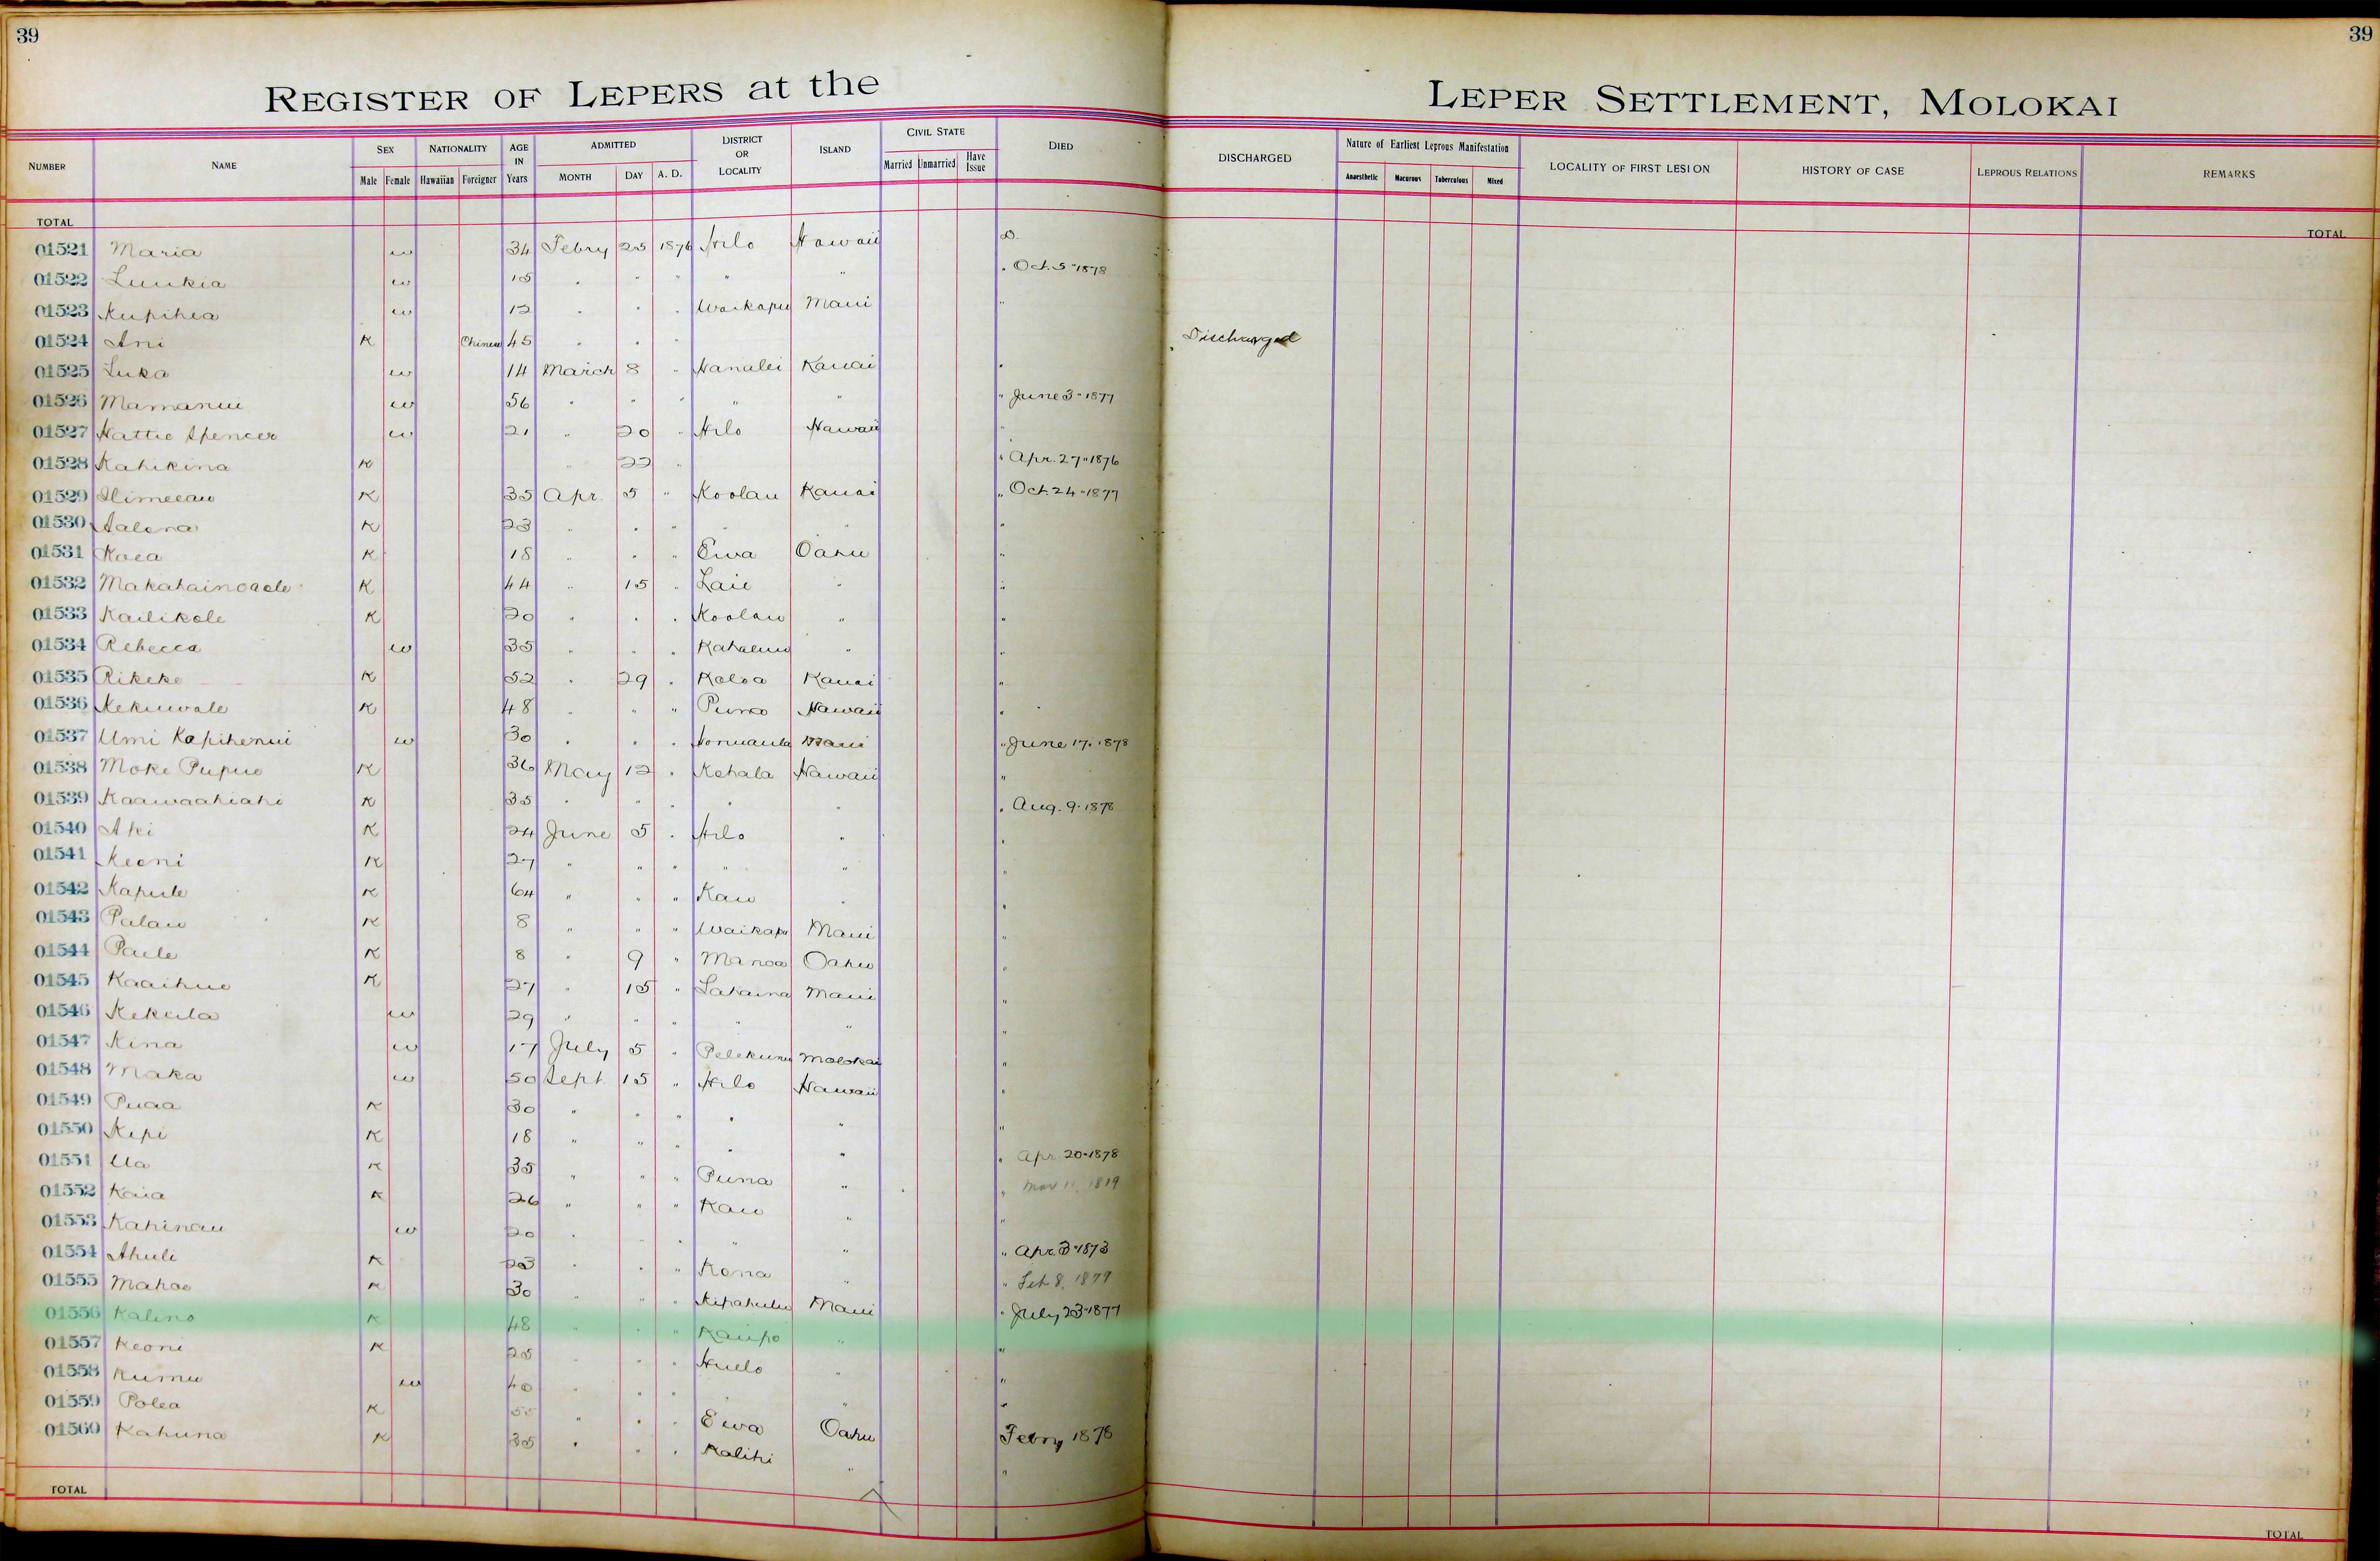 39
39
REGISTER OF LEPERS at the LEPER SETTLEMENT, MOLOKAI
NUMBER NAME SEX Male Female NATIONALITY Hawaiian Foreigner AGE IN Years ADMITTED MONTH DAY A. D. DISTRICT OR LOCALITY ISLAND CIVIL STATE Married Unmarried Have Issue DIED DISCHARGED Nature of Earliest Leprous Manifestation Anaesthetic Macurous Tuberculous Mixed LOCALITY OF FIRST LESION HISTORY OF CASE LEPROUS RELATIONS REMARKS
TOTAL TOTAL
01521 Maria w 34 Febry 25 1876 Hilo Hawaii D.
01522 Luukia w 15 " " " " " " Oct. 5 "1878
01523 Kupihea w 12 " " " Waikapu Maui "
01524 Ani K Chinese 45 " " " Discharged
01525 Luka w 14 March 8 " Hanalei Kauai "
01526 Mamanui w 56 " " " " " " June 3 - 1877
01527 Hattie Spencer w 21 " 20 " Hilo Hawaii "
01528 Kahikina K " 22 " " Apr. 27 " 1876
01529 K 35 Apr. 5 " Koolau Kauai " Oct. 24 - 1877
01530 Aalona K 23 " " " " " "
01531 Koea K 18 " " " Ewa Oahu "
01532 Makahainoaole K 44 " 15 " Laie " "
01533 Kailikole K 20 " " " Koolau " "
01534 Rebecca w 35 " " " Kahaluu " "
01535 Rikeke K 52 " 29 " Koloa Kauai "
01536 Kekuwale K 48 " " " Puna Hawaii "
01537 Umi Kapihenui w 30 " " " Honuaula Maui " June 17. 1878
01538 Moke Pupue K 36 May 12 " Kohala Hawaii "
01539 Kaawaahiahi K 35 " " " " " " Aug. 9. 1878
01540 Aki K 24 June 5 " Hilo " "
01541 Keoni K 27 " " " " " "
01542 Kapule K 64 " " " Kau " "
01543 Palau K 8 " " " Waikapu Maui "
01544 Paele K 8 " 9 " Manoa Oahu "
01545 Kaaihue K 27 " 15 " Lahaina Maui "
01546 Kekula w 29 " " " " " "
01547 Kina w 17 July 5 " Pelekunu Molokai "
01548 Maka w 50 Sept. 15 " Hilo Hawaii "
01549 Puaa K 30 " " " " " "
01550 Kepi K 18 " " " " " "
01551 Ua K 35 " " " Puna " " Apr. 20 - 1878
01552 Kaia K 26 " " " Kau " " Mar 11, 1819
01553 Kahinau w 20 " " " " " "
01554 Ahuli K 23 " " " Kona " " Apr. 3 - 1873
01555 Mahoe K 30 " " " Kipahulu Maui " Feb 8, 1879
01556 Kalino K 48 " " " Kaupo " " July 23 - 1877
01557 Keoni K 25 " " " Huelo " "
01558 Kumu w 40 " " " " "
01559 Polea K 55 " " " Ewa Oahu "
01560 Kahuna K 35 " " " Kalihi " Febry 1878
TOTAL TOTAL